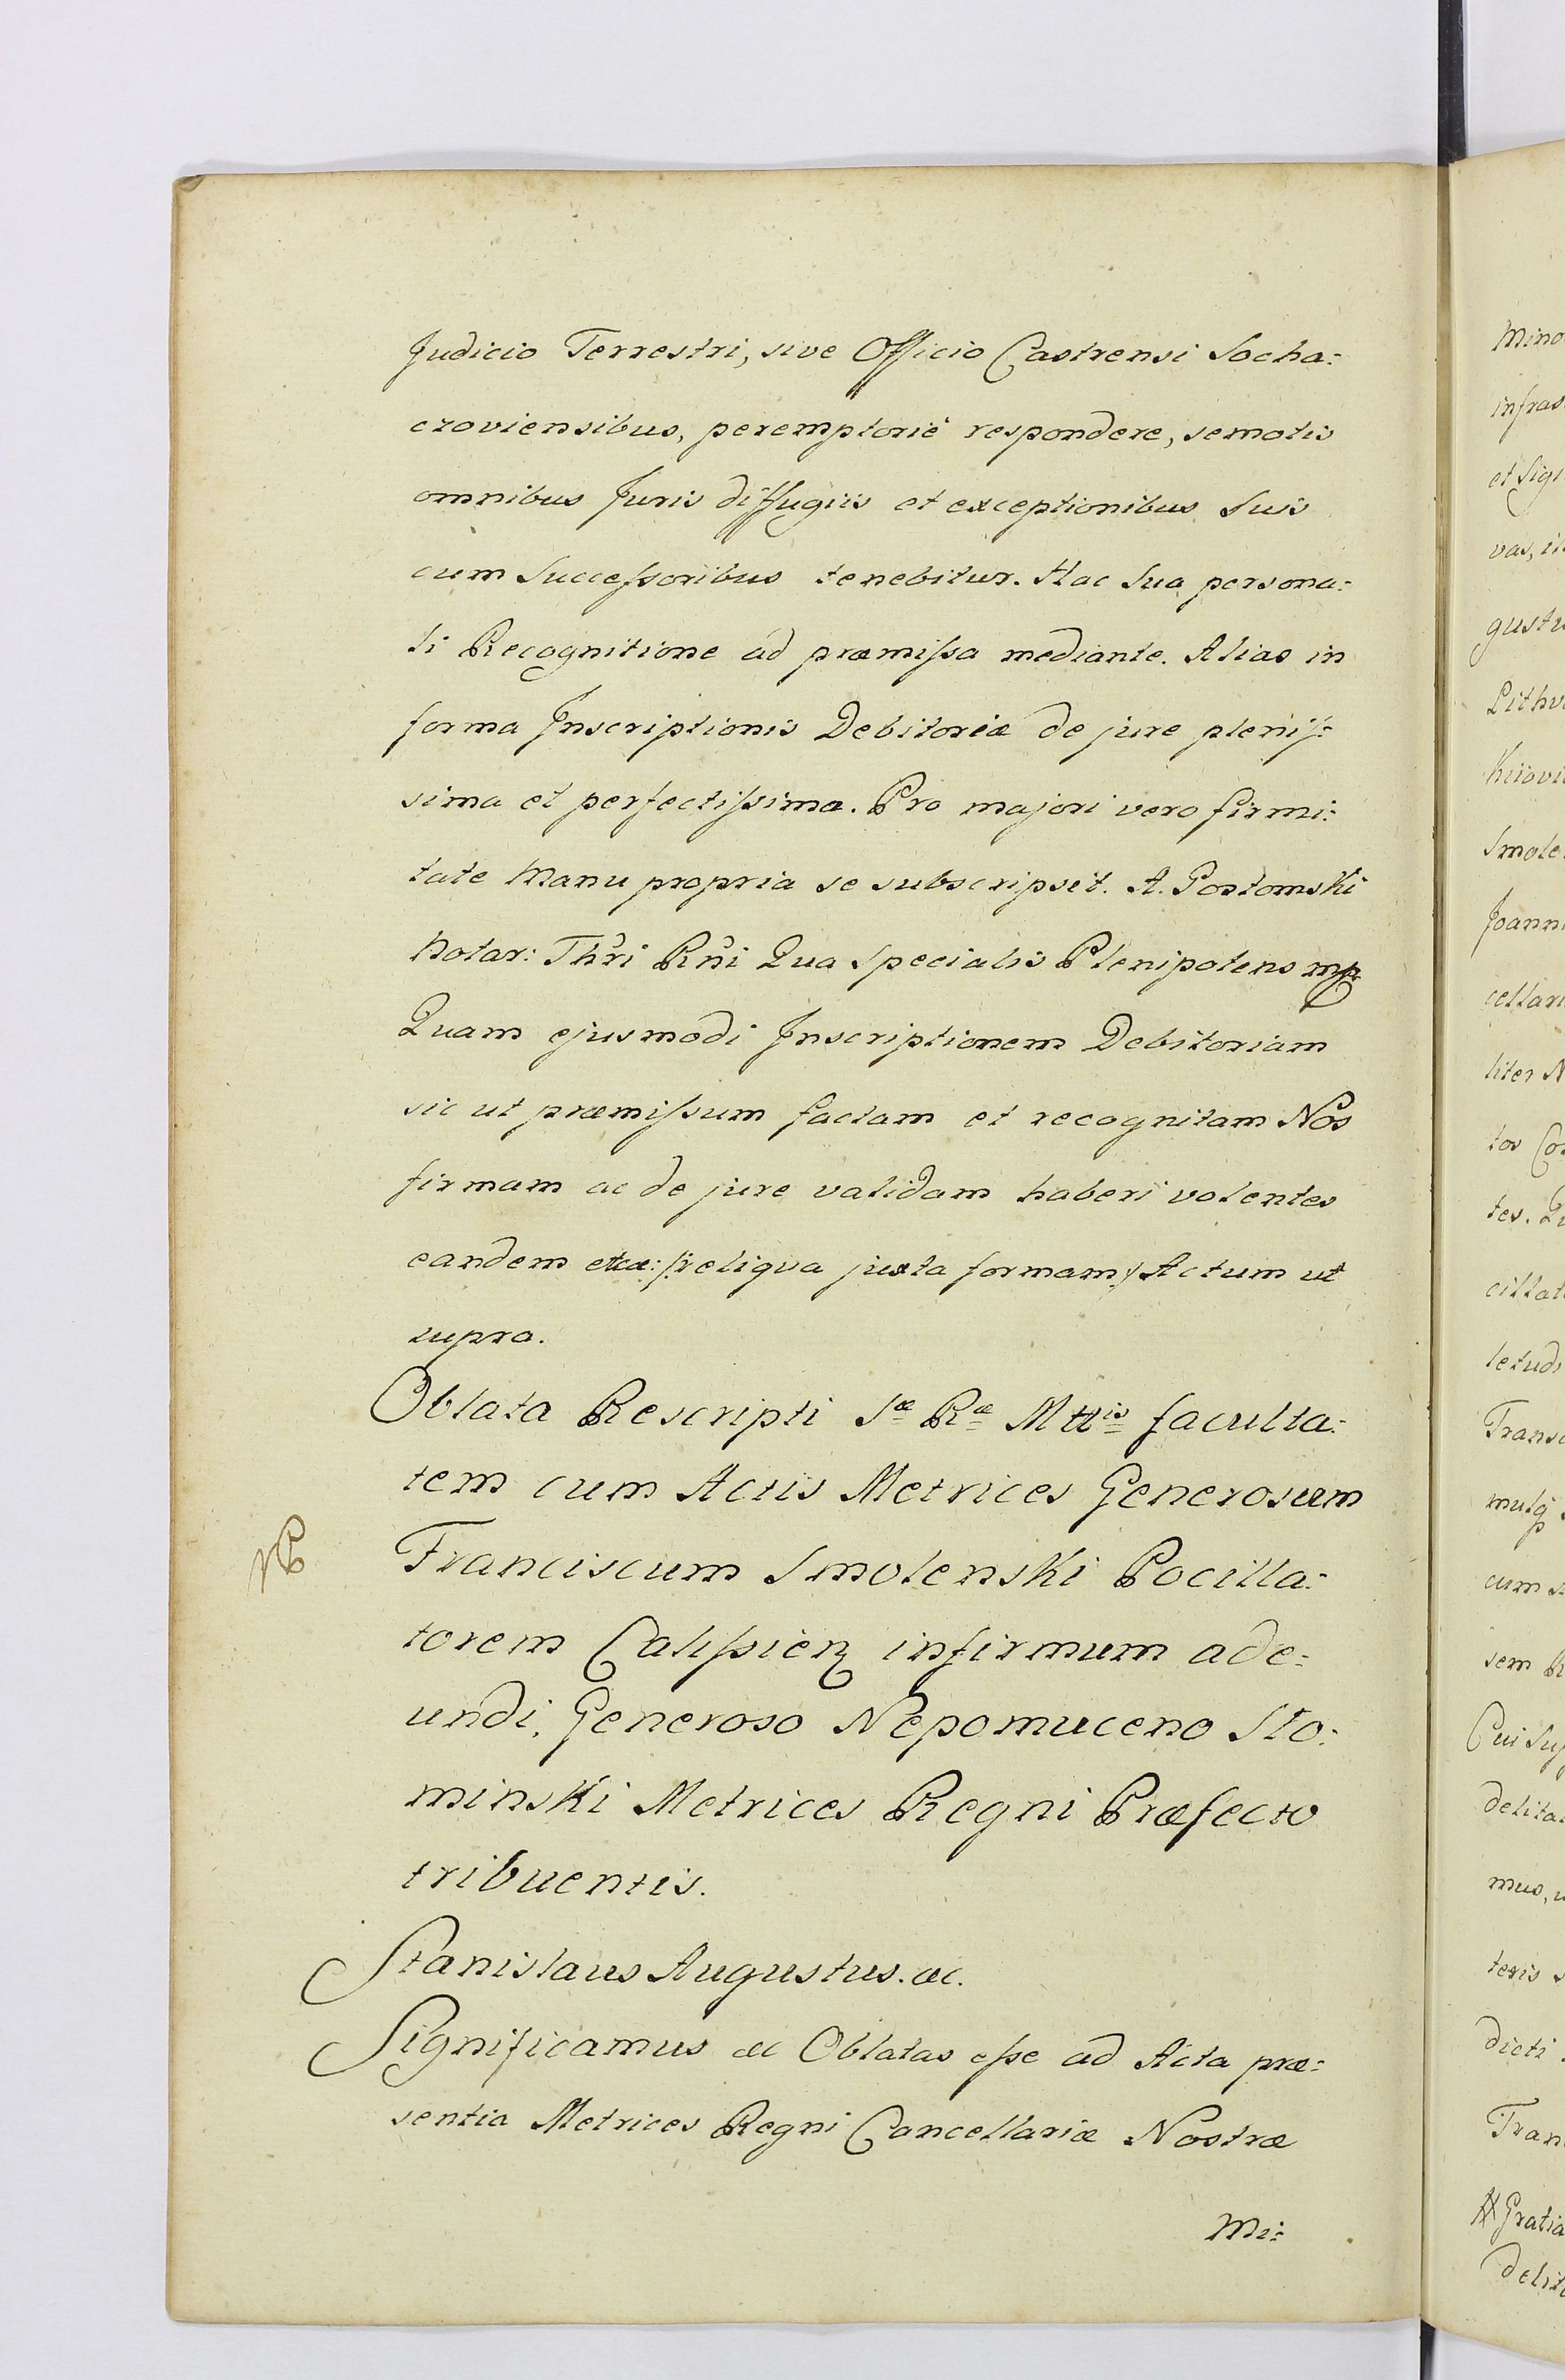 Judicio Terrestri, sive Officio Castrensi Socha:
czoviensibus, peremptorie respondere, semotis
omnibus Juris diffugiis et exceptionibus Suis
cum Successoribus tenebitur. Hac Sua persona:
li Recognitione ad præmissa mediante. Alias in
forma Inscriptionis Debitoriæ de jure plenis:
sima et perfectissima. Pro majori vero firmi:
tate Manu propria se subscripsit. A. Postomski
Notar: Thri Rni Qua Specialis Plenipotens mp
Quam ejusmodi Inscriptionem Debitoriam
sic ut præmissum factam et recognitam Nos
firmam ac de jure validam haberi volentes
eandem etcæ: /:reliqva juxta formam:/ Actum ut
supra.
Oblata Rescripti Sæ Ræ Mttis faculta:
tem cum Actis Metrices Generosum
Franciscum Smolenski Pocilla:
torem Calissien infirmum ade:
undi, Generoso Nepomuceno Sło:
minski Metrices Regni Præfecto
tribuentis.
Stanislaus Augustus. &c.
Significamus &c Oblatas esse ad Acta præ:
sentia Metrices Regni Cancellariæ Nostræ
Mi:
Mino
infras
et Sig
vas,
gustu
Lithv
Kiiovi
Smole
Joann
cellari
liter N
tos Co
tes.
cillat
letudi
Transc
mulq
cum
sem R
Cui Su
delita
mus,
teris
dicti
Fran
Gratia
delit